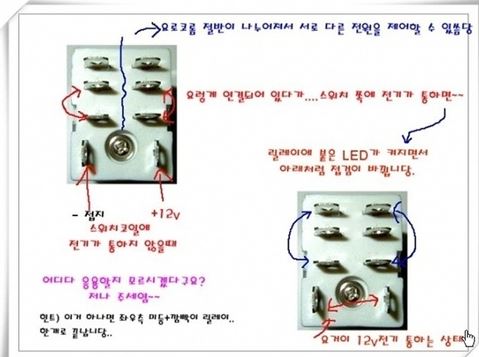 요로코롬 절반이 나누어져서 서로 다른 전원을 제어할 수 있씀당
요렇게 연결되어 있다가....스위치 쪽에 전기가 통하면~~
릴레이에 붙은 LED가 켜지면서
아래처럼 접점이 바뀝니다.
- 접지
+12v
스위치코일에
전기가 통하지 않을때
어디다 응용할지 모르시겠다구요?
저나 주세염~~
힌트) 이거 하나면 좌우측 미등+깜빡이 릴레이..
한개로 끝납니다..
요거이 12v전기 통하는 상태